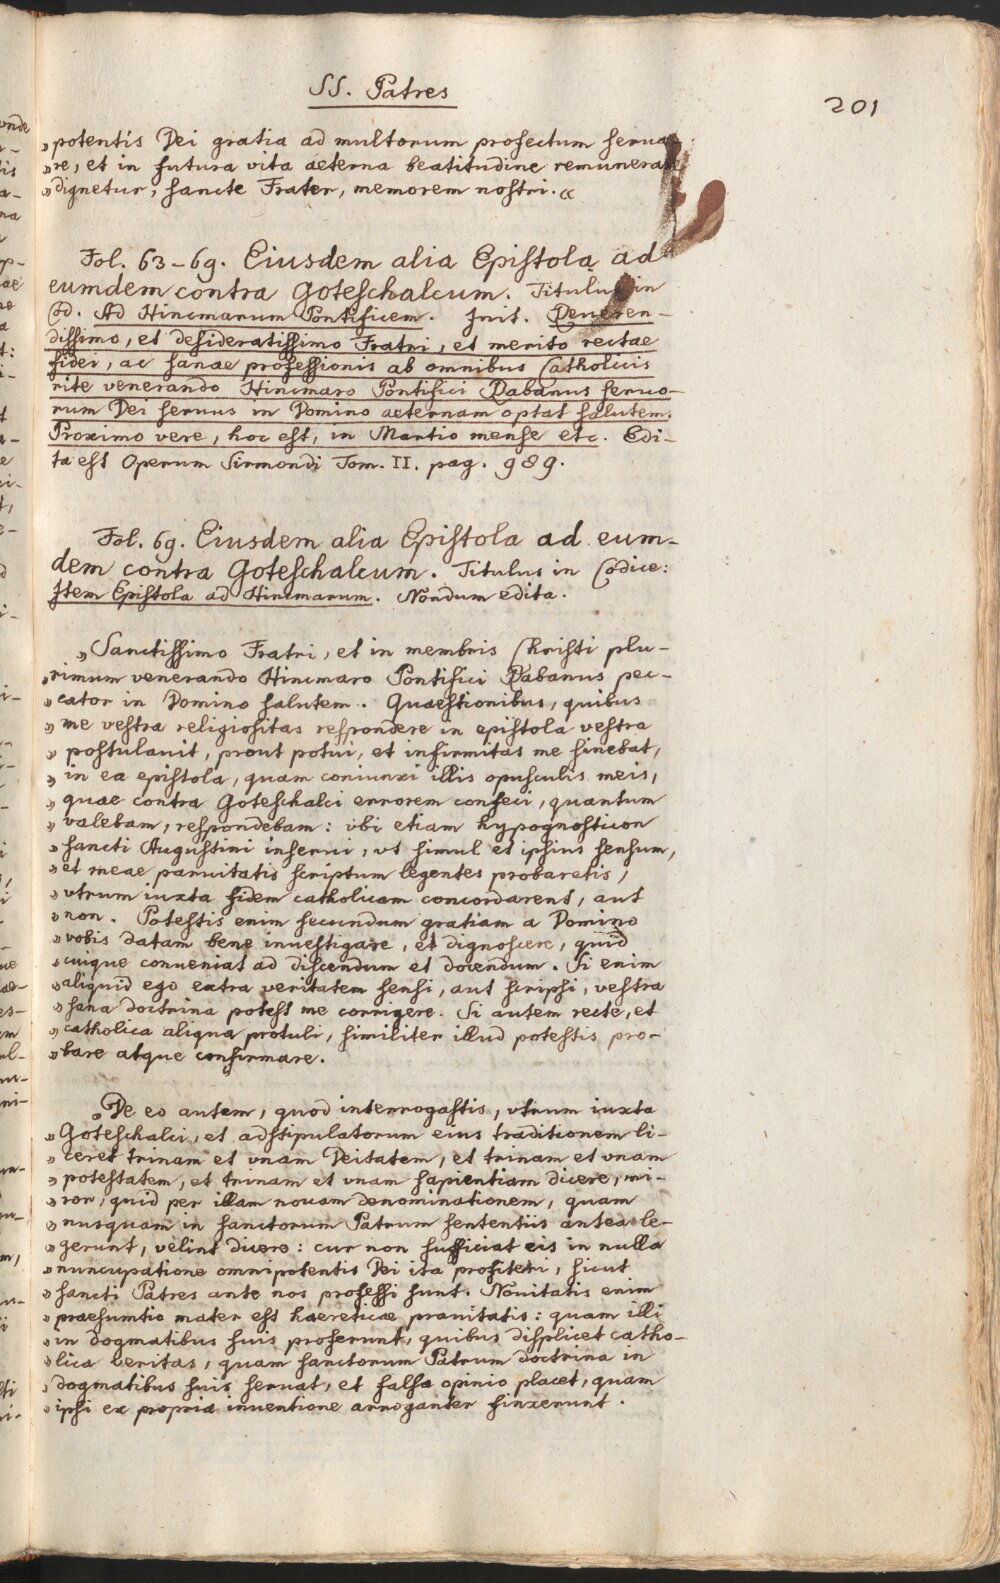 SS. Patres
201
„potentis Dei gratia ad multorum profectum serua-
„re, et in futura vita aeterna beatitudine remunerare
„dignetur, sancte Frater, memorem nostri.“
Fol. 63-69. Eiusdem alia Epistola ad
eumdem contra Goteschalcum. Titulus in
Cod. Ad Hincmarum Pontificem. Init. Reueren-
dissimo, et desideratissimo Fratri, et merito rectae
fidei, ac sanae professionis ab omnibus Catholicis
rite venerando Hincmaro Pontifici Rabanus seruo-
rum Dei seruus in Domino aeternam optat salutem.
Proximo vere, hoc est, in Martio mense etc. Edi-
ta est Operum Sirmondi Tom. II. pag. 989.
Fol. 69. Eiusdem alia Epistola ad eum-
dem contra Goteschalcum. Titulus in Codice:
Item Epistola ad Hincmarum. Nondum edita.
„Sanctissimo Fratri, et in membris Christi plu-
„rimum venerando Hincmaro Pontifici Rabanus pec-
„cator in Domino salutem. Quaestionibus, quibus
„me vestra religiositas respondere in epistola vestra
„postulauit, prout potui, et infirmitas me sinebat,
„in ea epistola, quam coniunxi illis opusculis meis,
„quae contra Goteschalci errorem confeci, quantum
„valebam, respondebam: vbi etiam hypognosticon
„sancti Augustini inserui, vt simul et ipsius sensum,
„et meae paruitatis scriptum legentes probaretis,
„vtrum iuxta fidem catholicam concordarent, aut
„non. Potestis enim secundum gratiam a Domino
„vobis datam bene inuestigare, et dignoscere, quid
„cuique conueniat ad discendum et docendum. Si enim
„aliquid ego extra veritatem sensi, aut scripsi, vestra
„sana doctrina potest me corrigere. Si autem recte, et
„catholica aliqua protuli, similiter illud potestis pro-
„bare atque confirmare.
„De eo autem, quod interrogastis, vtrum iuxta
„Goteschalci, et adstipulatorum eius traditionem li-
„ceret trinam et vnam Deitatem, et trinam et vnam
„potestatem, et trinam et vnam sapientiam dicere, mi-
„ror, quid per illam nouam denominationem, quam
„nusquam in sanctorum Patrum sententiis antea le-
„gerunt, velint dicere: cur non sufficiat eis in nulla
„nuncupatione omnipotentis Dei ita profiteri, sicut
„sancti Patres ante nos professi sunt. Nouitatis enim
„praesumtio mater est haereticae prauitatis: quam illi
„in dogmatibus suis proferunt, quibus displicet catho-
„lica veritas, quam sanctorum Patrum doctrina in
„dogmatibus suis seruat, et falsa opinio placet, quam
„ipsi ex propria inuentione arroganter finxerunt.